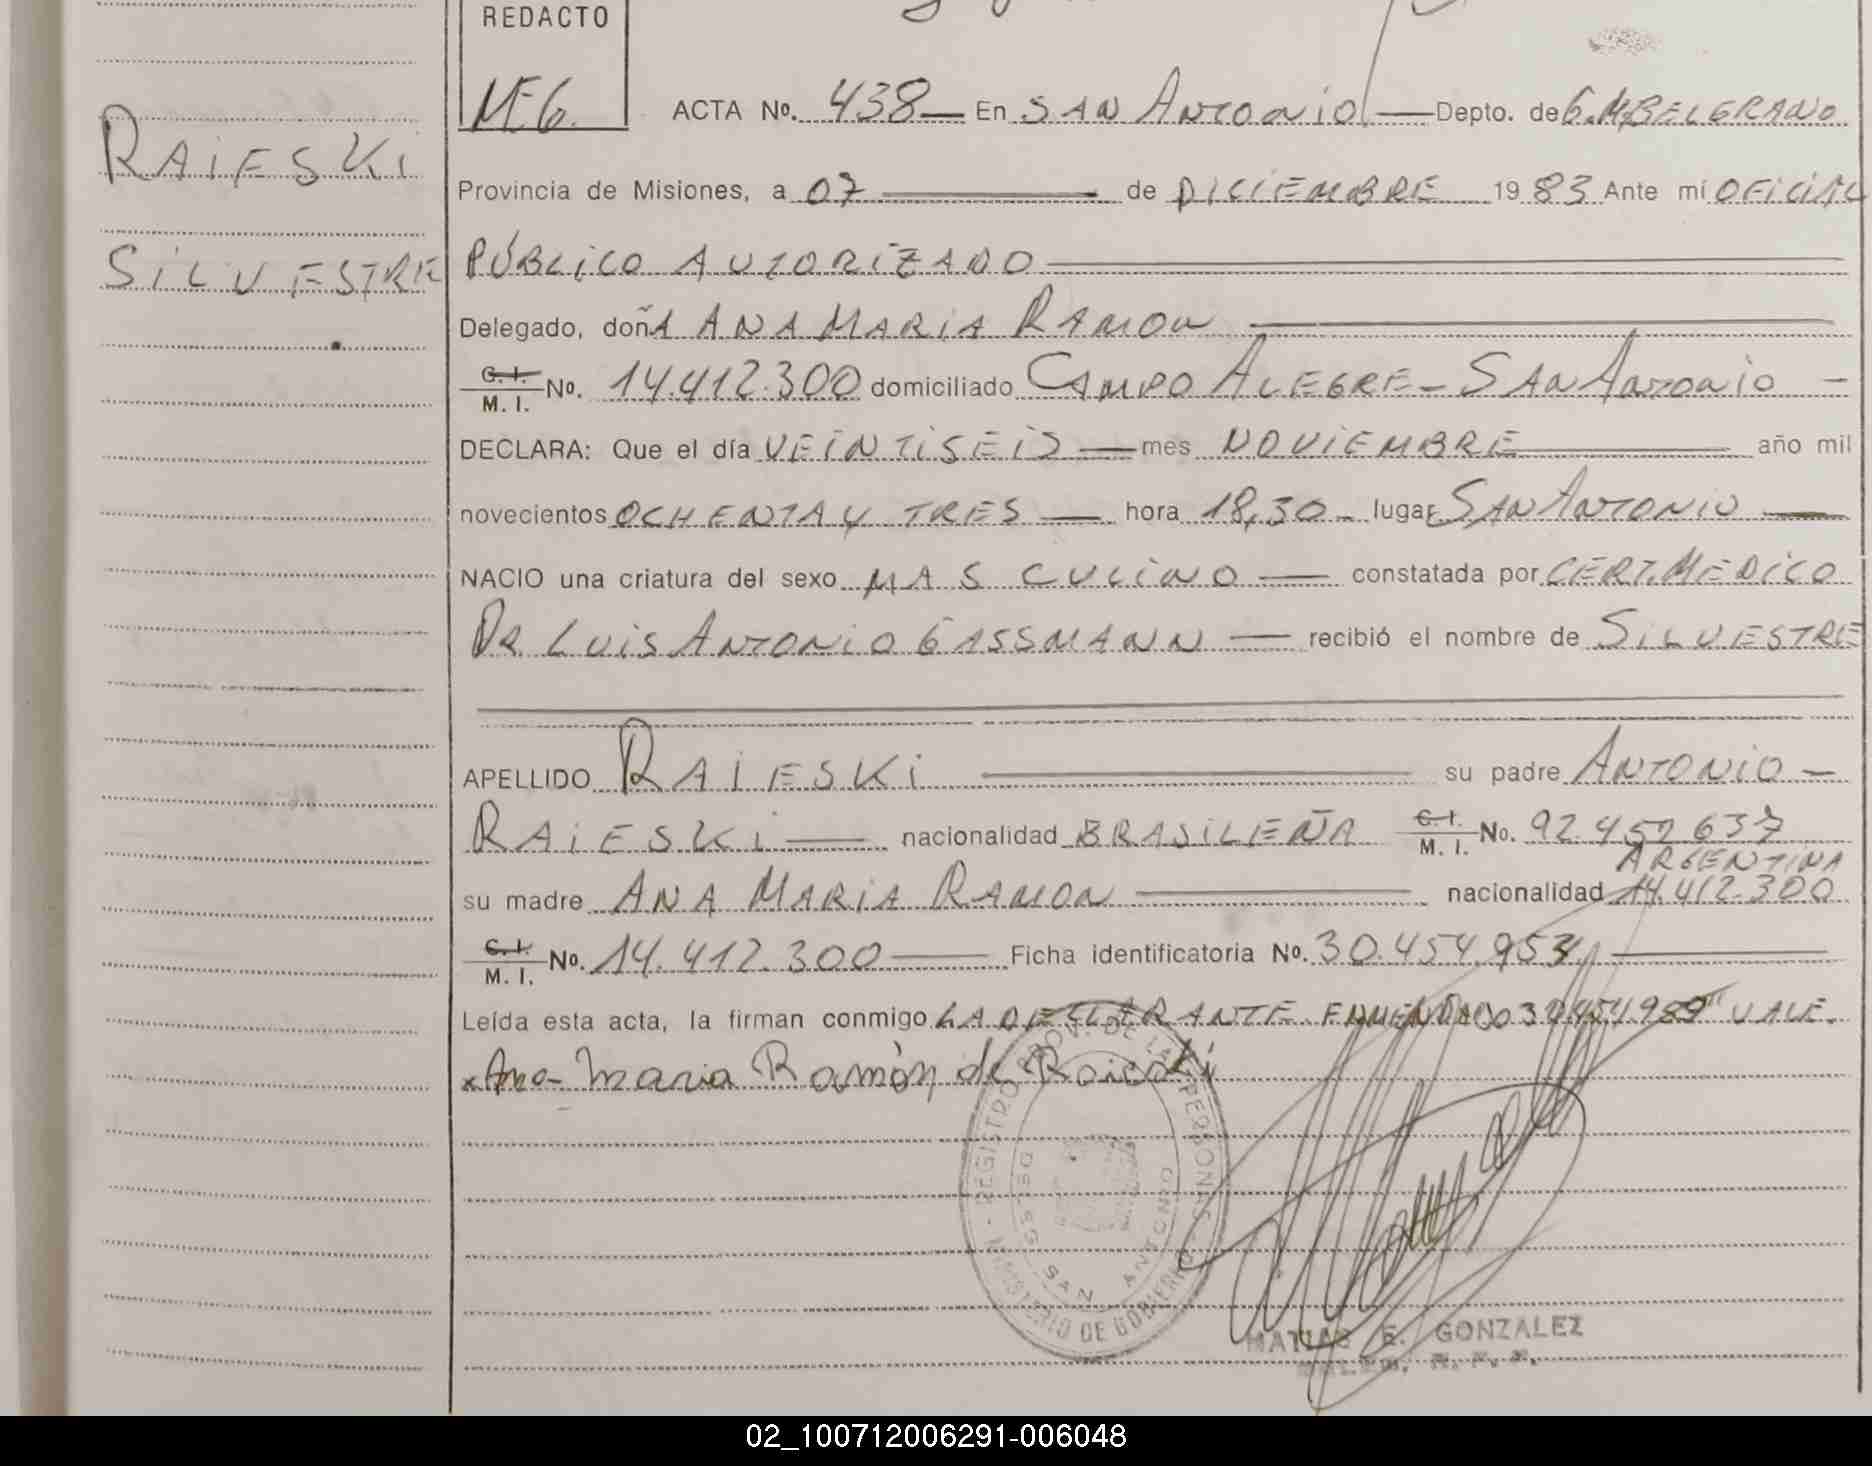 REDACTO
MEG.
RAIESKI
SILVESTRE
ACTA No. 438 — En SAN ANTONIO — Depto. de G. M. BELGRANO
Provincia de Misiones, a 07 — de DICIEMBRE 1983 Ante mí OFICIAL
PÚBLICO AUTORIZADO
Delegado, doñA ANA MARIA RAMON
C. I. / M. I. No. 14.412.300 domiciliado CAMPO ALEGRE - SAN ANTONIO -
DECLARA: Que el día VEINTISEIS — mes NOVIEMBRE — año mil
novecientos OCHENTA Y TRES — hora 18,30 - lugar SAN ANTONIO —
NACIO una criatura del sexo MASCULINO — constatada por CERT. MEDICO
DR. LUIS ANTONIO GASSMANN — recibió el nombre de SILVESTRE
APELLIDO RAIESKI — su padre ANTONIO -
RAIESKI — nacionalidad BRASILEÑA C. I. / M. I. No. 92.452.637
ARGENTINA
su madre ANA MARIA RAMON — nacionalidad 14.412.300
C. I. / M. I. No. 14.412.300 — Ficha identificatoria No. 30.454.953 —
Leída esta acta, la firman conmigo LA DECLARANTE. ENMENDADO VALE.
x Ana Maria Ramón de Raieski
REGISTRO PROV. DE LAS PERSONAS - MINISTERIO DE GOBIERNO
SAN ANTONIO
MATIAS E. GONZALEZ
02_100712006291-006048